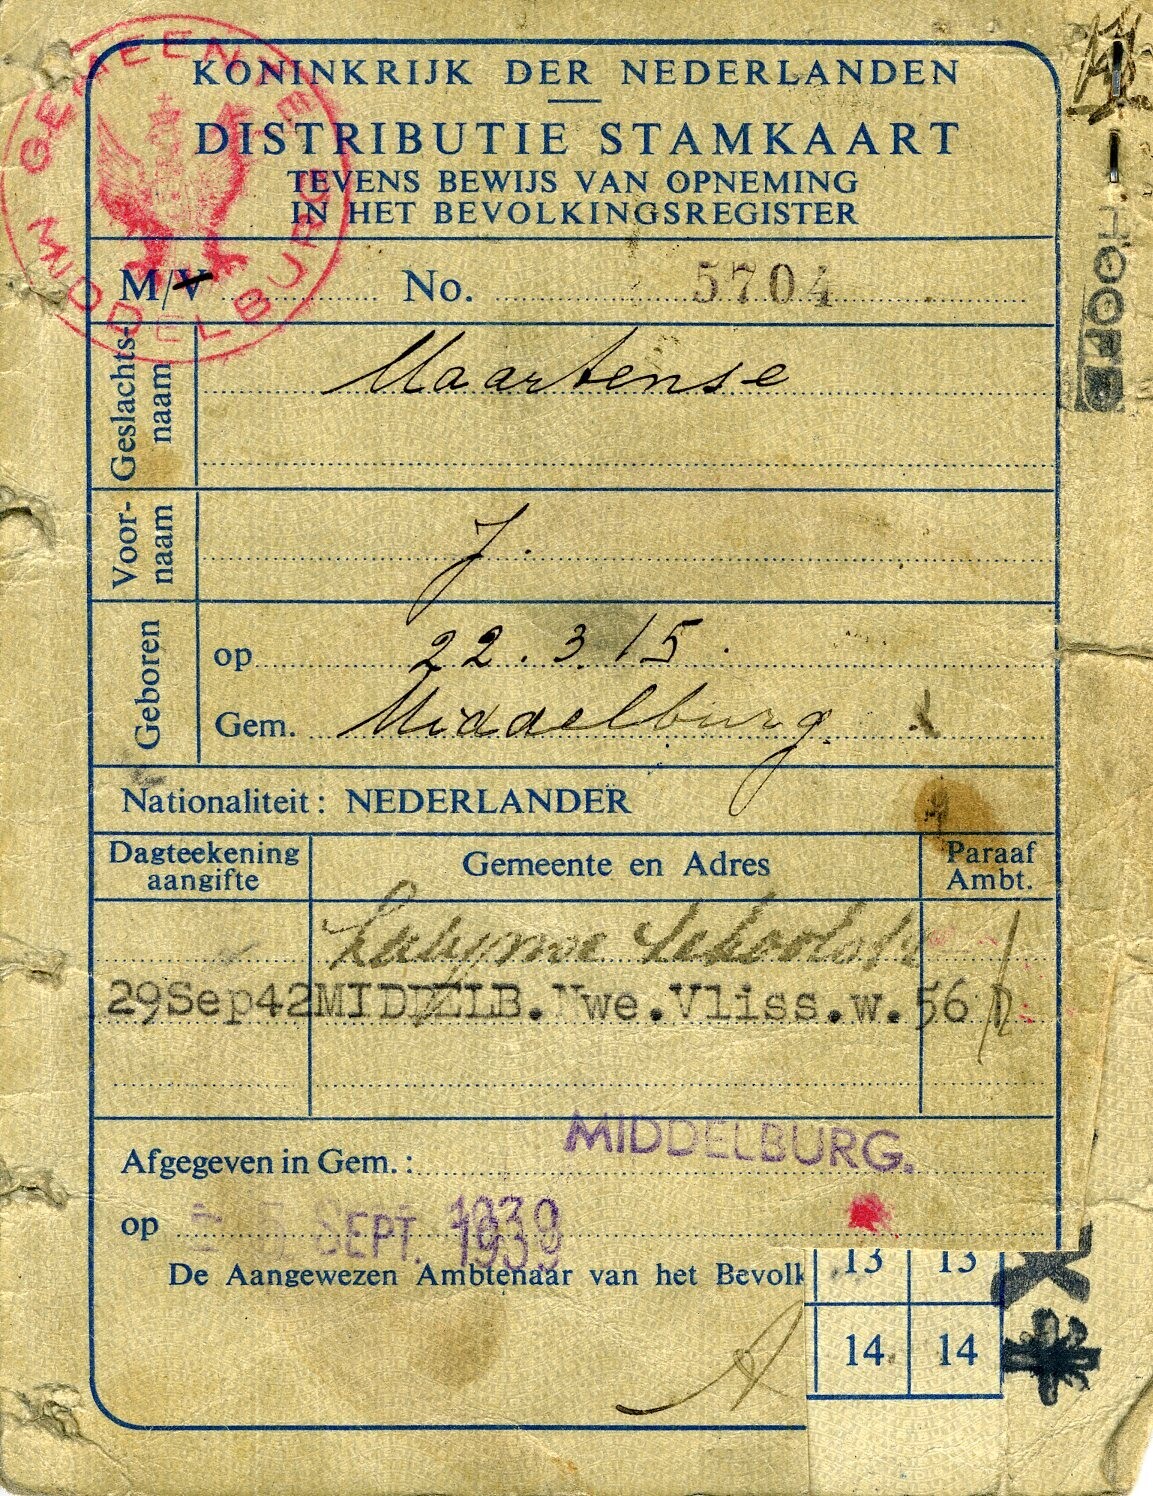 GEMEENTE MIDDELBURG
KONINKRIJK DER NEDERLANDEN
DISTRIBUTIE STAMKAART
TEVENS BEWIJS VAN OPNEMING
IN HET BEVOLKINGSREGISTER
M/V No. 5704
HOOFD
Geslachts-
naam
Maartense
Voor-
naam
J.
Geboren
op 22.3.15.
Gem. Middelburg.
Nationaliteit: NEDERLANDER
Dagteekening
aangifte
Gemeente en Adres
Paraaf
Ambt.
29Sep42 MIDDELB. Nwe.Vliss.w.56
Afgegeven in Gem.: MIDDELBURG.
op SEPT. 1939
De Aangewezen Ambtenaar van het Bevolk
13 13
14 14
K*